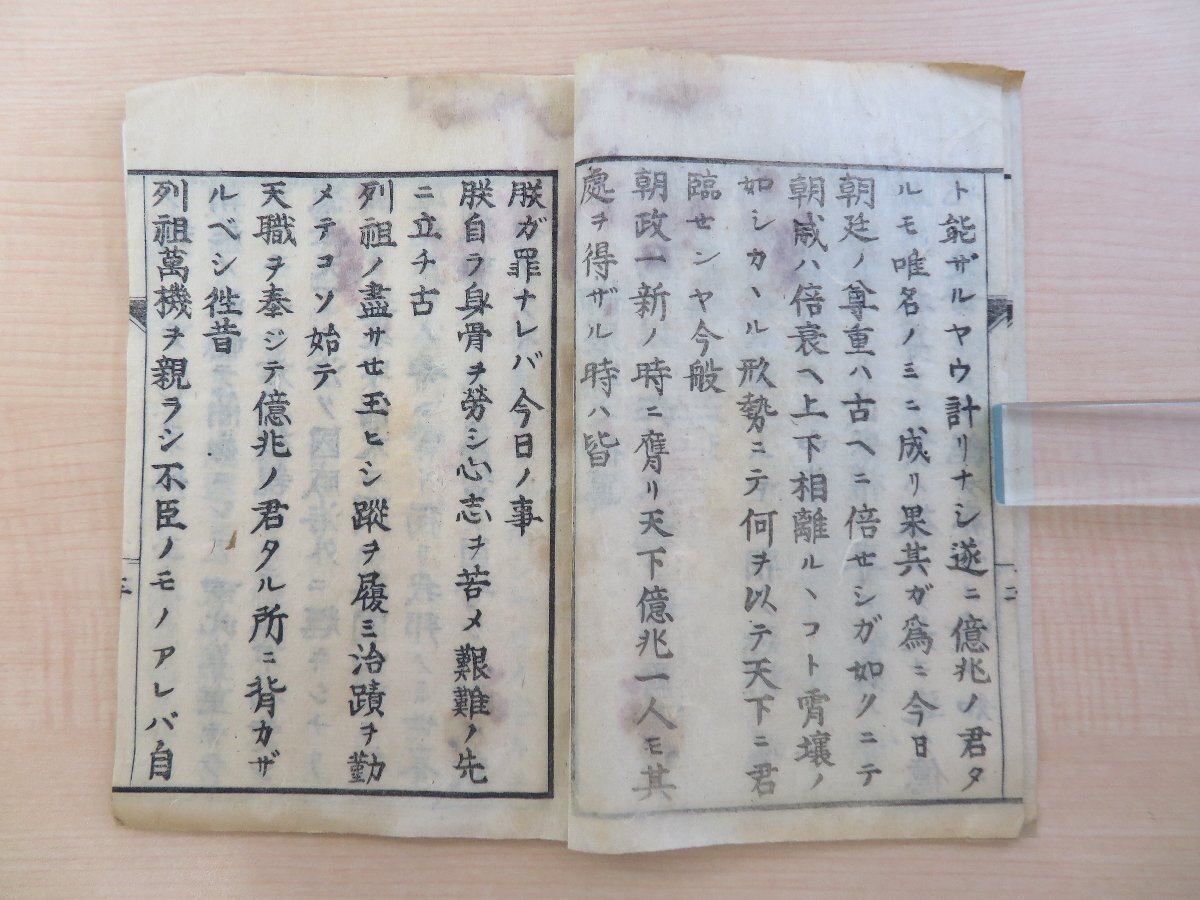 ト能ザルヤウ計リナシ遂ニ億兆ノ君タ
ルモ唯名ノミニ成リ果其ガ為ニ今日
朝廷ノ尊重ハ古ヘニ倍セシガ如クニテ
朝威ハ倍衰ヘ上下相離ルヽコト霄壤ノ
如シカヽル形勢ニテ何ヲ以テ天下ニ君
臨センヤ今般
朝政一新ノ時ニ膺リ天下億兆一人モ其
處ヲ得ザル時ハ皆
二
朕ガ罪ナレバ今日ノ事
朕自ラ身骨ヲ勞シ心志ヲ苦メ艱難ノ先
ニ立チ古
列祖ノ盡サセ玉ヒシ蹤ヲ履ミ治蹟ヲ勤
メテコソ始テ
天職ヲ奉ジテ億兆ノ君タル所ニ背カザ
ルベシ徃昔
列祖萬機ヲ親ラシ不臣ノモノアレバ自
三